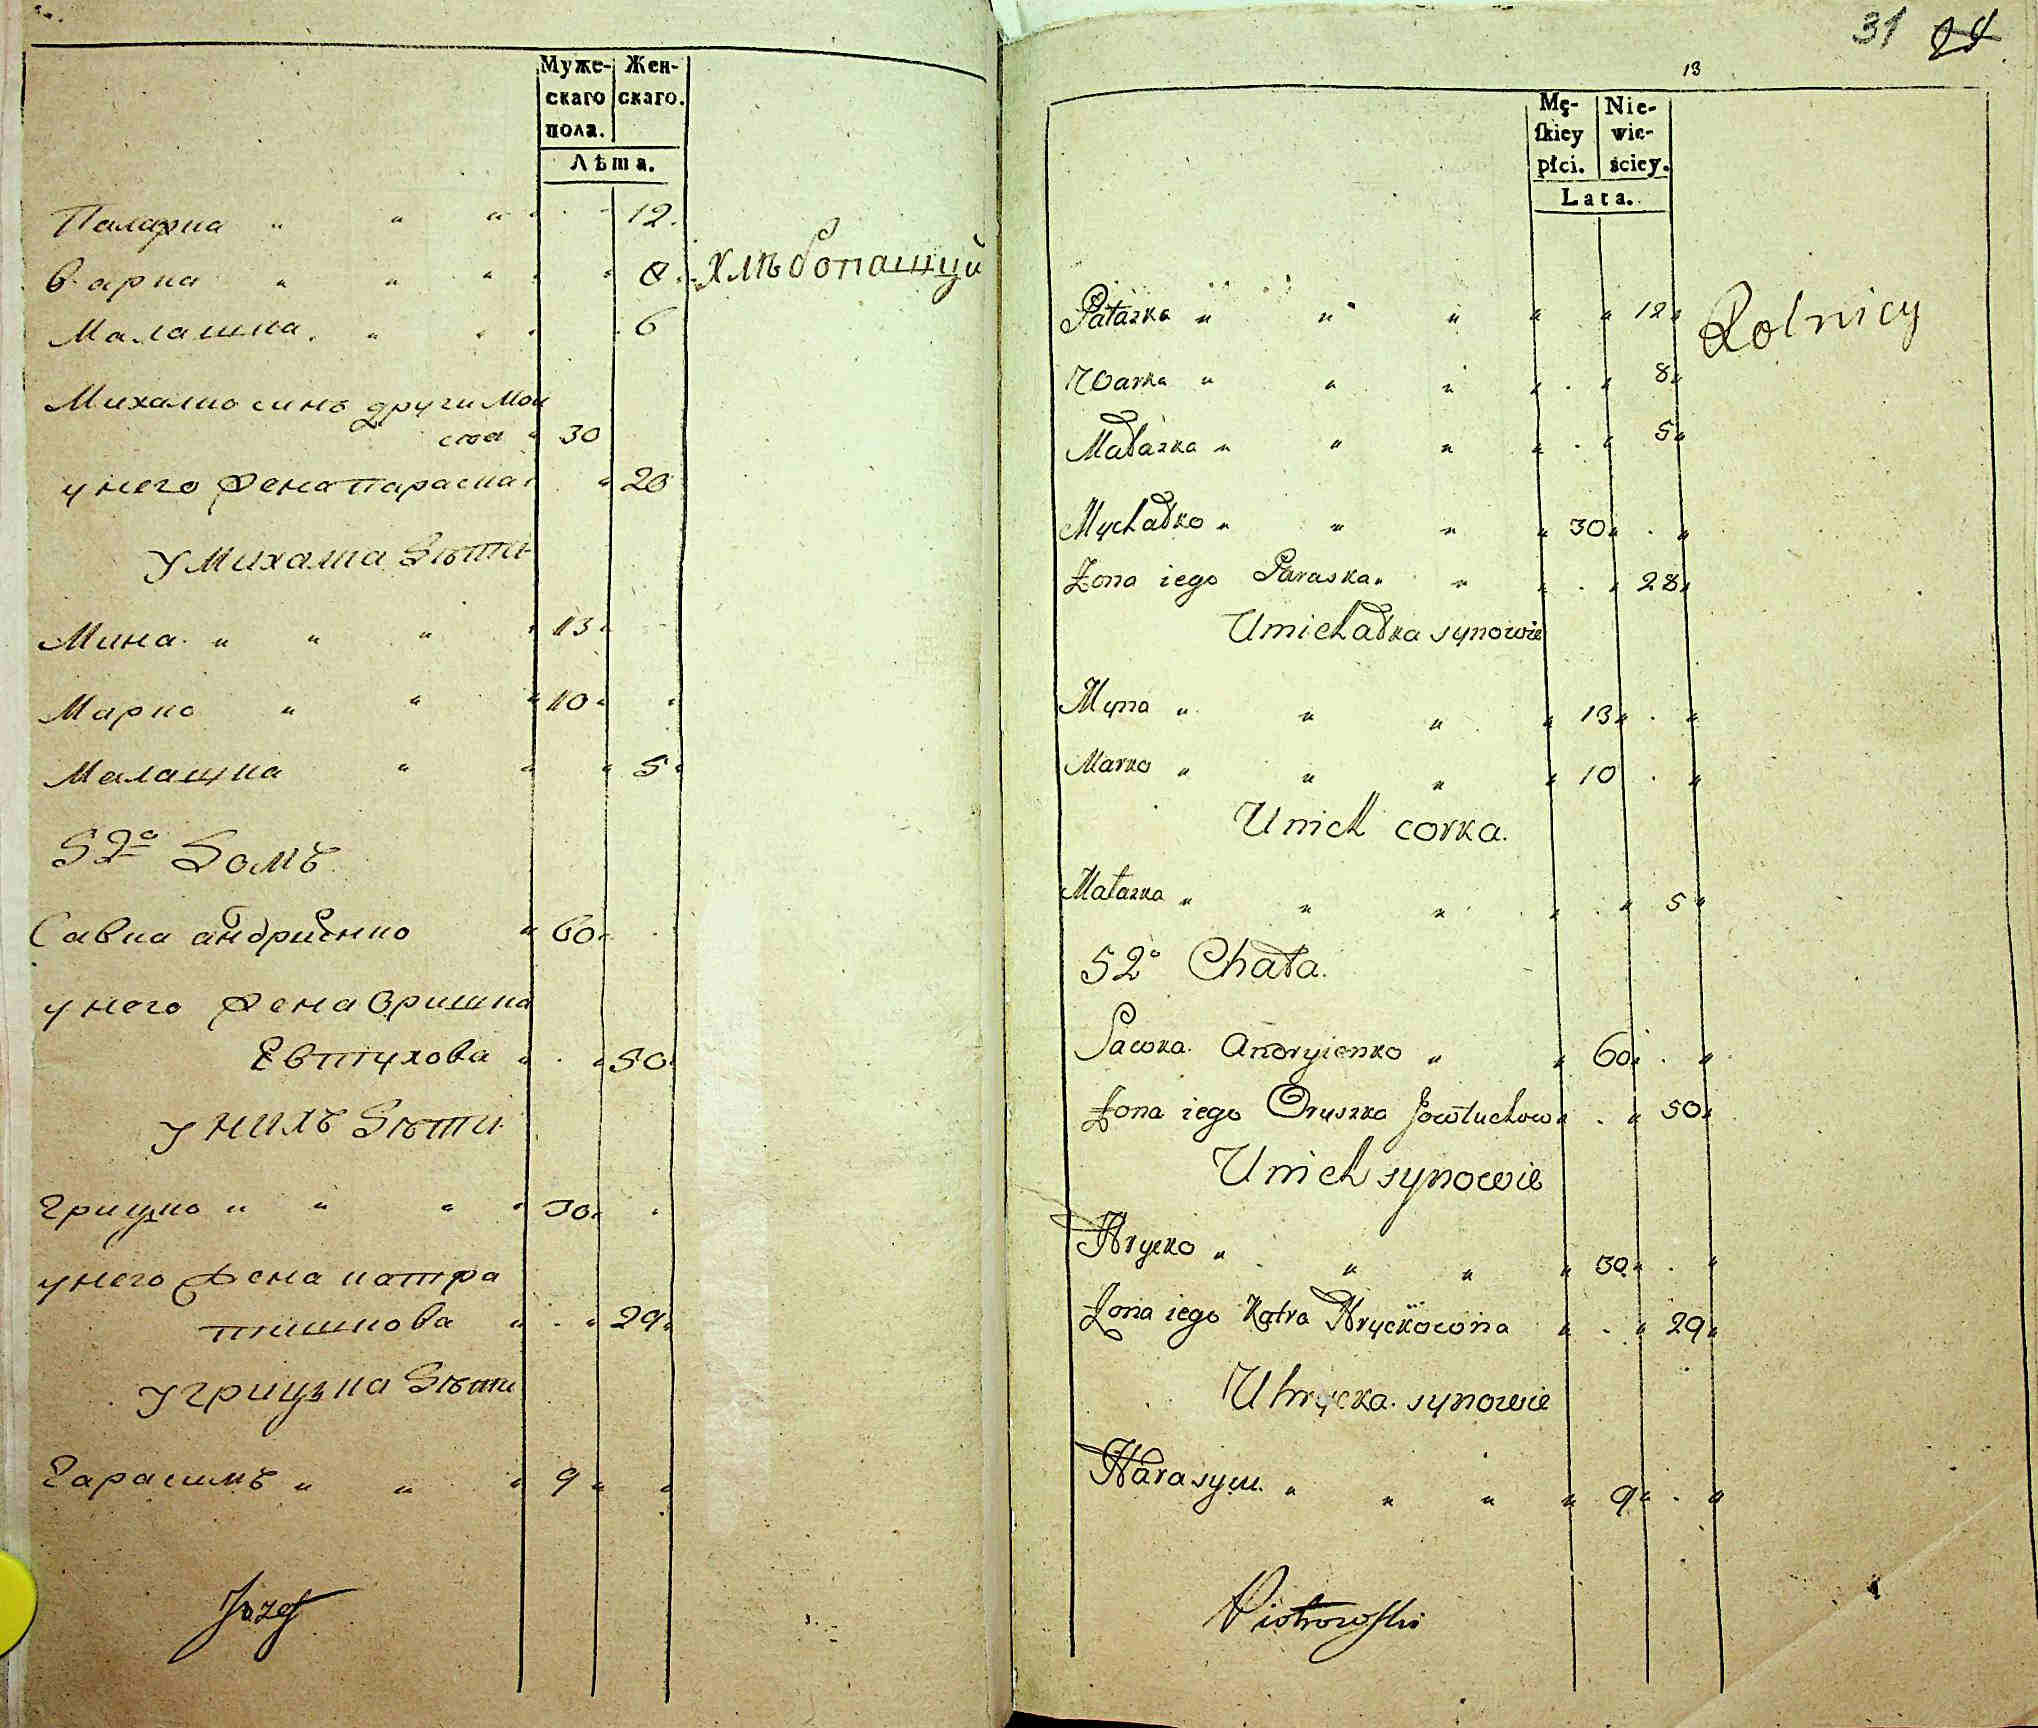 Муже- Жен-
скаго скаго.
пола.
Лѣта.
Палажка " " " 12.
Варка " " " 8.
Хлѣбопашцы
Малашка " " 6
Михалко синъ други Мои
сѣа " 30
у него жена параска 28
у Михалка дѣти
Мина " " " 13
Марко " " 10
Малашка " " 5
52й домъ
Савка андриенко " 60
у него жена Оришка
Евтухова " 50
у нихъ дѣти
Грицко " " " 30
у него жена катра
тишкова " 29
у грицька дѣти
Гарасимъ " " " 9
Jozef
31
13
Mę- Nie-
skiey wie-
płci. ściey.
Lata.
Pałazka " " " 12
Rolnicy
Warka " " " 8
Małazka " " " 5
Mychałko " " " 30
Żona iego Paraska " 28
Umichałka synowie
Myna " " " 13
Marko " " " 10
Unich corka.
Małazka " " " 5
52a Chata.
Sawka Andryienko " 60
Żona iego Oryszka Jowtuchowa 50
Unich synowie
Hrycko " " " 30
Żona iego Katra Hryckowna 29
Uhrycka synowie
Harasym " " " 9
Piotrowski